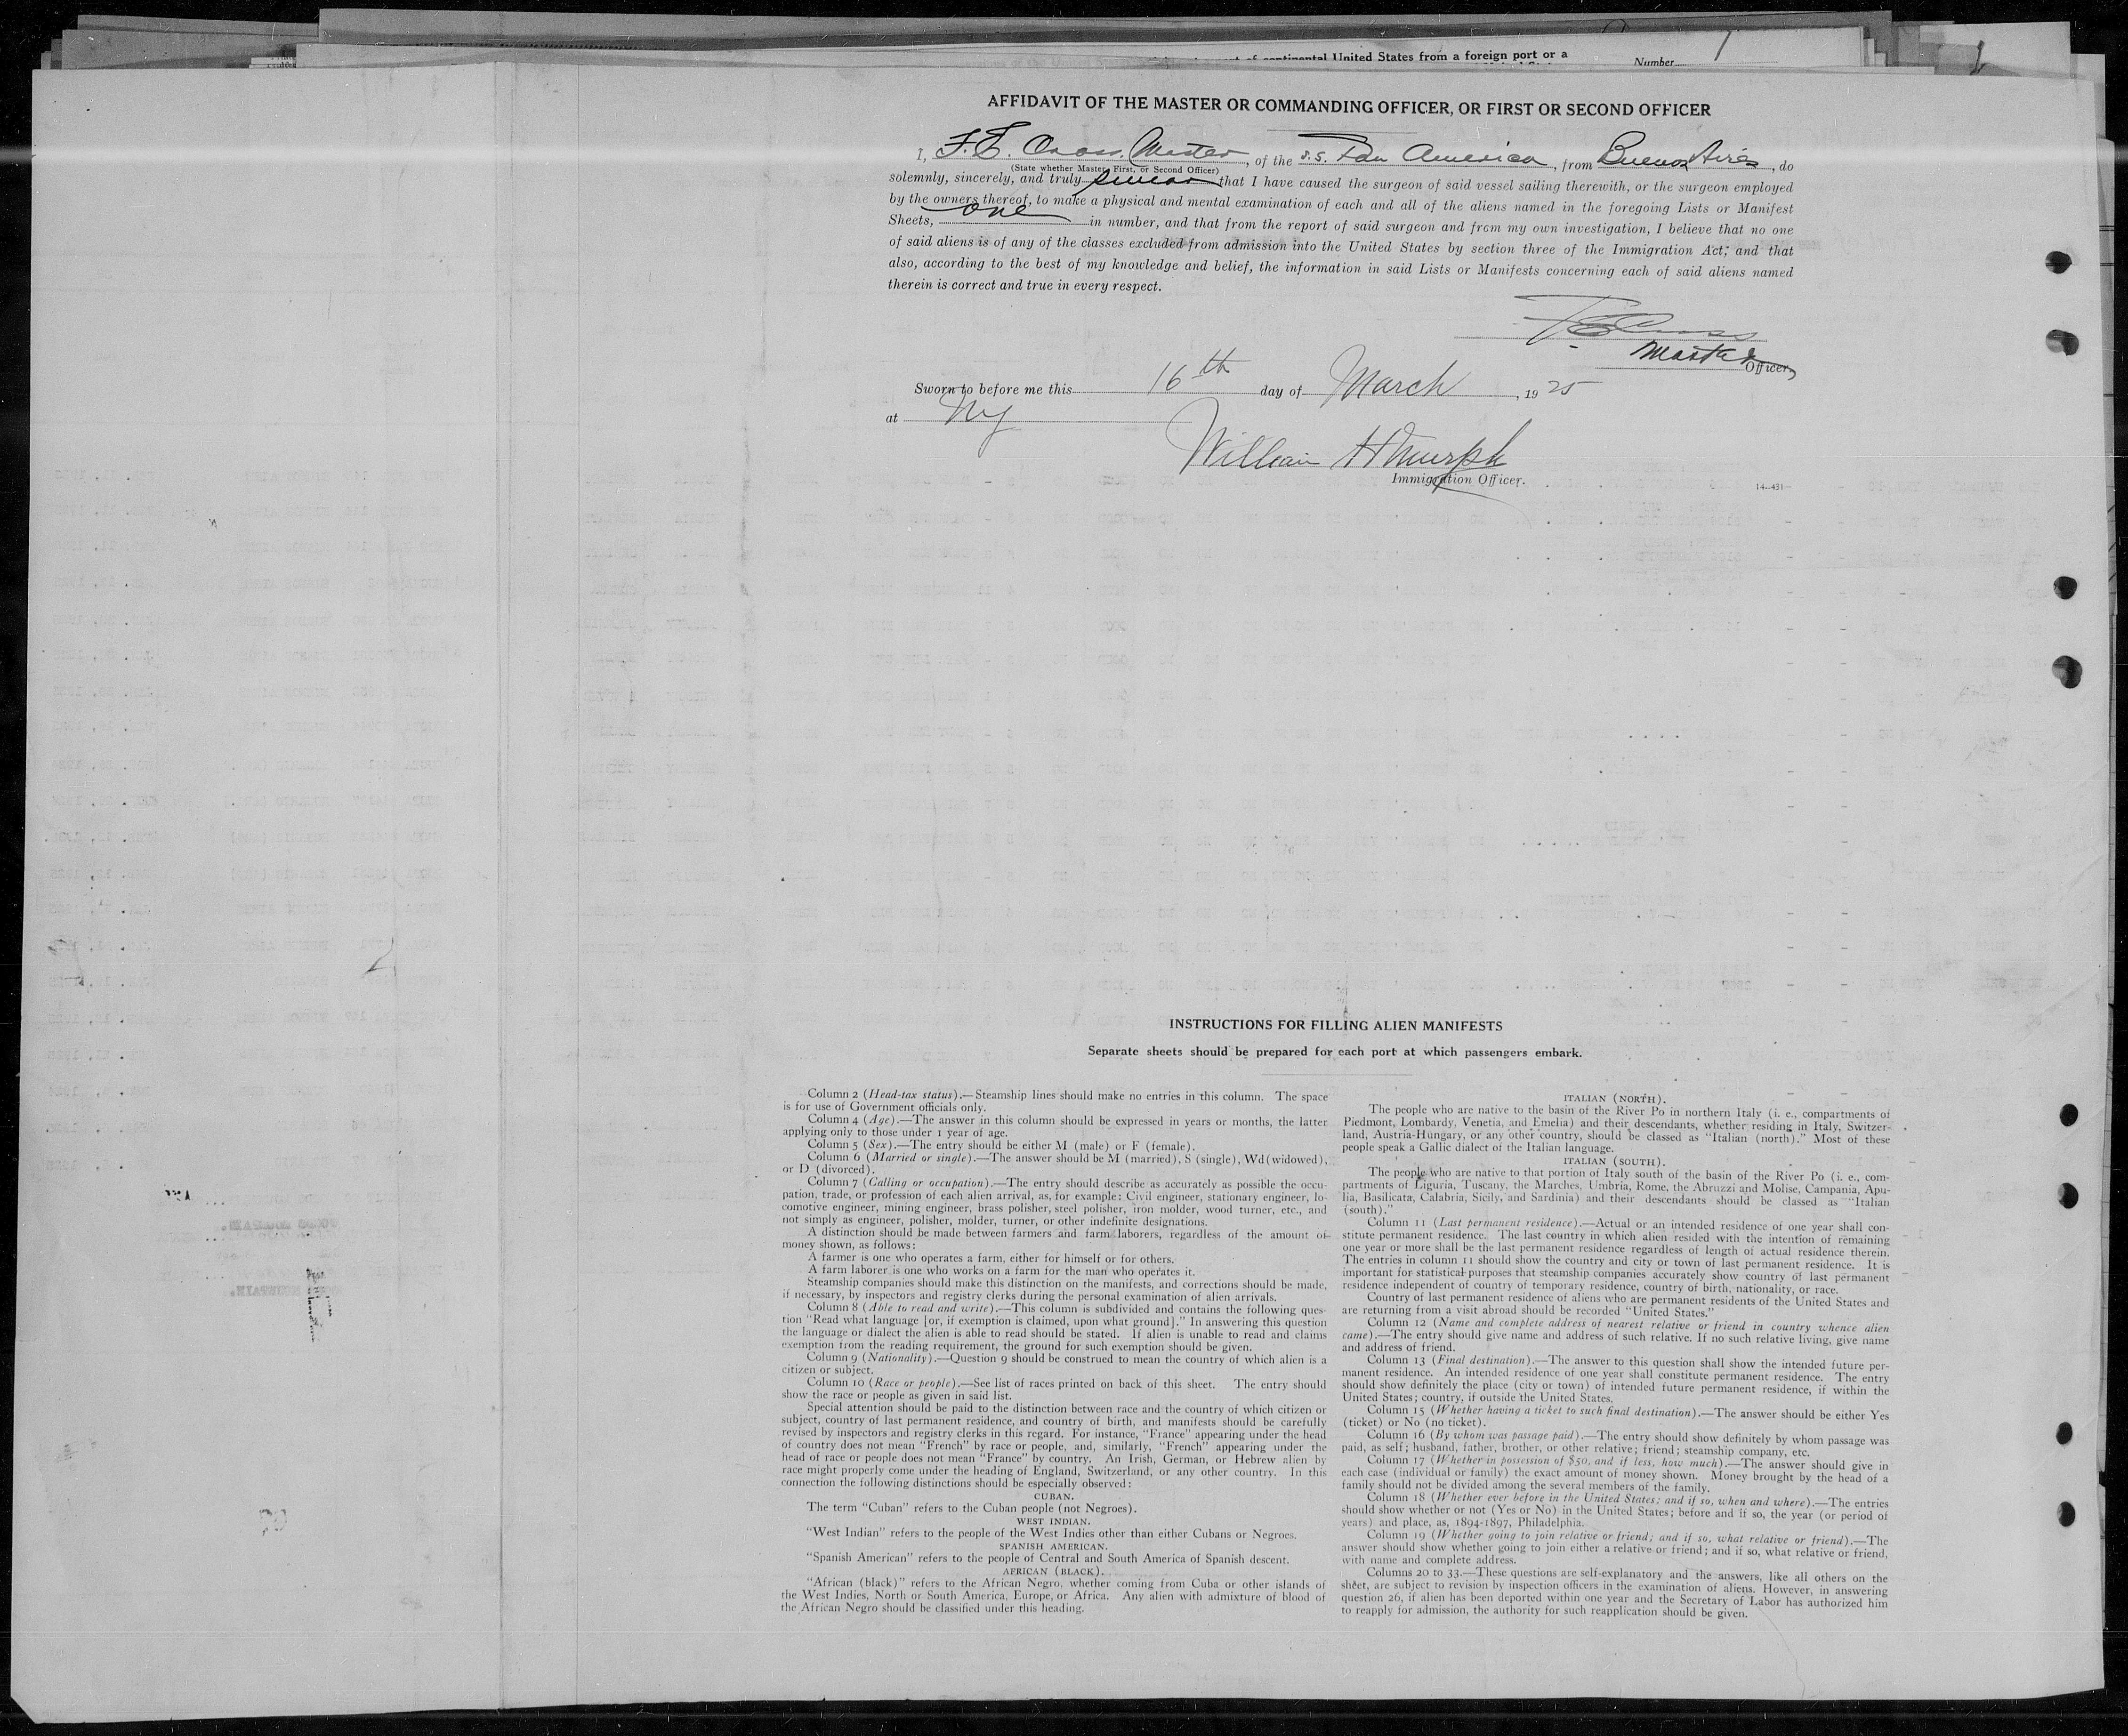 of continental United States from a foreign port or a
Number 1
AFFIDAVIT OF THE MASTER OR COMMANDING OFFICER, OR FIRST OR SECOND OFFICER
I, F. E. Cross, Master, of the S.S. Pan America, from Buenos Aires, do
(State whether Master, First, or Second Officer)
solemnly, sincerely, and truly swear that I have caused the surgeon of said vessel sailing therewith, or the surgeon employed
by the owners thereof, to make a physical and mental examination of each and all of the aliens named in the foregoing Lists or Manifest
Sheets, one in number, and that from the report of said surgeon and from my own investigation, I believe that no one
of said aliens is of any of the classes excluded from admission into the United States by section three of the Immigration Act; and that
also, according to the best of my knowledge and belief, the information in said Lists or Manifests concerning each of said aliens named
therein is correct and true in every respect.
F E Cross
Master
Officer.
Sworn to before me this 16th day of March, 1925
at NY
William H Murph
Immigration Officer.
14-431
INSTRUCTIONS FOR FILLING ALIEN MANIFESTS
Separate sheets should be prepared for each port at which passengers embark.
Column 2 (Head-tax status).—Steamship lines should make no entries in this column. The space
is for use of Government officials only.
Column 4 (Age).—The answer in this column should be expressed in years or months, the latter
applying only to those under 1 year of age.
Column 5 (Sex).—The entry should be either M (male) or F (female).
Column 6 (Married or single).—The answer should be M (married), S (single), Wd(widowed),
or D (divorced).
Column 7 (Calling or occupation).—The entry should describe as accurately as possible the occu-
pation, trade, or profession of each alien arrival, as, for example: Civil engineer, stationary engineer, lo-
comotive engineer, mining engineer, brass polisher, steel polisher, iron molder, wood turner, etc., and
not simply as engineer, polisher, molder, turner, or other indefinite designations.
A distinction should be made between farmers and farm laborers, regardless of the amount of
money shown, as follows:
A farmer is one who operates a farm, either for himself or for others.
A farm laborer is one who works on a farm for the man who operates it.
Steamship companies should make this distinction on the manifests, and corrections should be made,
if necessary, by inspectors and registry clerks during the personal examination of alien arrivals.
Column 8 (Able to read and write).—This column is subdivided and contains the following ques-
tion "Read what language [or, if exemption is claimed, upon what ground]." In answering this question
the language or dialect the alien is able to read should be stated. If alien is unable to read and claims
exemption from the reading requirement, the ground for such exemption should be given.
Column 9 (Nationality).—Question 9 should be construed to mean the country of which alien is a
citizen or subject.
Column 10 (Race or people).—See list of races printed on back of this sheet. The entry should
show the race or people as given in said list.
Special attention should be paid to the distinction between race and the country of which citizen or
subject, country of last permanent residence, and country of birth, and manifests should be carefully
revised by inspectors and registry clerks in this regard. For instance, "France" appearing under the head
of country does not mean "French" by race or people, and, similarly, "French" appearing under the
head of race or people does not mean "France" by country. An Irish, German, or Hebrew alien by
race might properly come under the heading of England, Switzerland, or any other country. In this
connection the following distinctions should be especially observed:
CUBAN.
The term "Cuban" refers to the Cuban people (not Negroes).
WEST INDIAN.
"West Indian" refers to the people of the West Indies other than either Cubans or Negroes.
SPANISH AMERICAN.
"Spanish American" refers to the people of Central and South America of Spanish descent.
AFRICAN (BLACK).
"African (black)" refers to the African Negro, whether coming from Cuba or other islands of
the West Indies, North or South America, Europe, or Africa. Any alien with admixture of blood of
the African Negro should be classified under this heading.
ITALIAN (NORTH).
The people who are native to the basin of the River Po in northern Italy (i. e., compartments of
Piedmont, Lombardy, Venetia, and Emelia) and their descendants, whether residing in Italy, Switzer-
land, Austria-Hungary, or any other country, should be classed as "Italian (north)." Most of these
people speak a Gallic dialect of the Italian language.
ITALIAN (SOUTH).
The people who are native to that portion of Italy south of the basin of the River Po (i. e., com-
partments of Liguria, Tuscany, the Marches, Umbria, Rome, the Abruzzi and Molise, Campania, Apu-
lia, Basilicata, Calabria, Sicily, and Sardinia) and their descendants should be classed as "Italian
(south)."
Column 11 (Last permanent residence).—Actual or an intended residence of one year shall con-
stitute permanent residence. The last country in which alien resided with the intention of remaining
one year or more shall be the last permanent residence regardless of length of actual residence therein.
The entries in column 11 should show the country and city or town of last permanent residence. It is
important for statistical purposes that steamship companies accurately show country of last permanent
residence independent of country of temporary residence, country of birth, nationality, or race.
Country of last permanent residence of aliens who are permanent residents of the United States and
are returning from a visit abroad should be recorded "United States."
Column 12 (Name and complete address of nearest relative or friend in country whence alien
came).—The entry should give name and address of such relative. If no such relative living, give name
and address of friend.
Column 13 (Final destination).—The answer to this question shall show the intended future per-
manent residence. An intended residence of one year shall constitute permanent residence. The entry
should show definitely the place (city or town) of intended future permanent residence, if within the
United States; country, if outside the United States.
Column 15 (Whether having a ticket to such final destination).—The answer should be either Yes
(ticket) or No (no ticket).
Column 16 (By whom was passage paid).—The entry should show definitely by whom passage was
paid, as self; husband, father, brother, or other relative; friend; steamship company, etc.
Column 17 (Whether in possession of $50, and if less, how much).—The answer should give in
each case (individual or family) the exact amount of money shown. Money brought by the head of a
family should not be divided among the several members of the family.
Column 18 (Whether ever before in the United States; and if so, when and where).—The entries
should show whether or not (Yes or No) in the United States; before and if so, the year (or period of
years) and place, as, 1894-1897, Philadelphia.
Column 19 (Whether going to join relative or friend; and if so, what relative or friend).—The
answer should show whether going to join either a relative or friend; and if so, what relative or friend,
with name and complete address.
Columns 20 to 33.—These questions are self-explanatory and the answers, like all others on the
sheet, are subject to revision by inspection officers in the examination of aliens. However, in answering
question 26, if alien has been deported within one year and the Secretary of Labor has authorized him
to reapply for admission, the authority for such reapplication should be given.